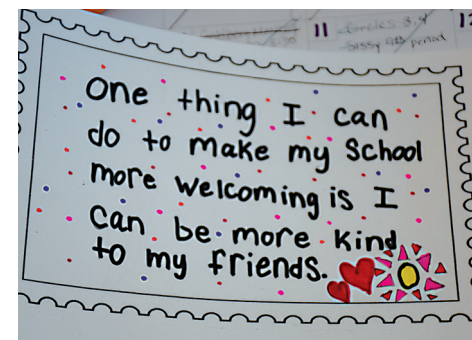 11
One thing I can
do to make my School
more welcoming is I
can be more kind
to my friends.